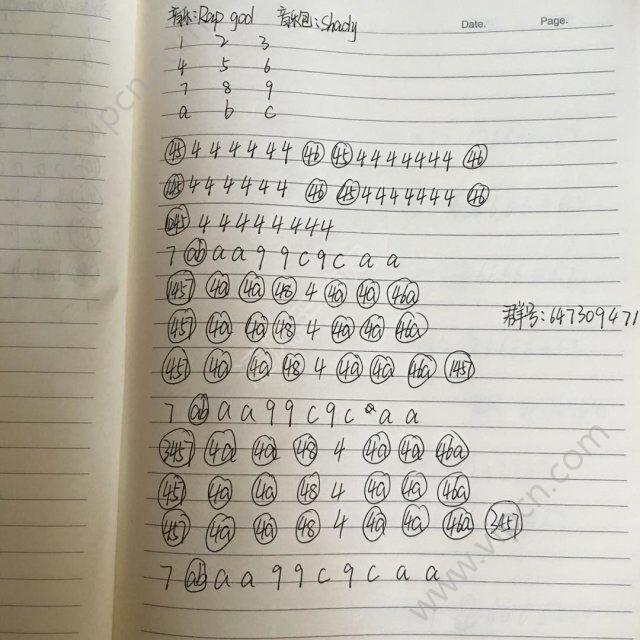 音乐:Rap god 音乐包:Shady
Date. Page.
1 2 3
4 5 6
7 8 9
a b c
45 4 4 4 4 4 4 46 45 4 4 4 4 4 4 4 46
145 4 4 4 4 4 4 46 45 4 4 4 4 4 4 4 46
1245 4 4 4 4 4 4 4 4
7 ab a a 9 9 c 9 c a a
1457 4a 4a 48 4 4a 4a 46a
群号:647309471
457 4a 4a 48 4 4a 4a 46a
457 4a 4a 48 4 4a 4a 46a 1457
7 ab a a 9 9 c 9 c a a
3457 4a 4a 48 4 4a 4a 46a
457 4a 4a 48 4 4a 4a 46a
457 4a 4a 48 4 4a 4a 46a 3457
7 ab a a 9 9 c 9 c a a